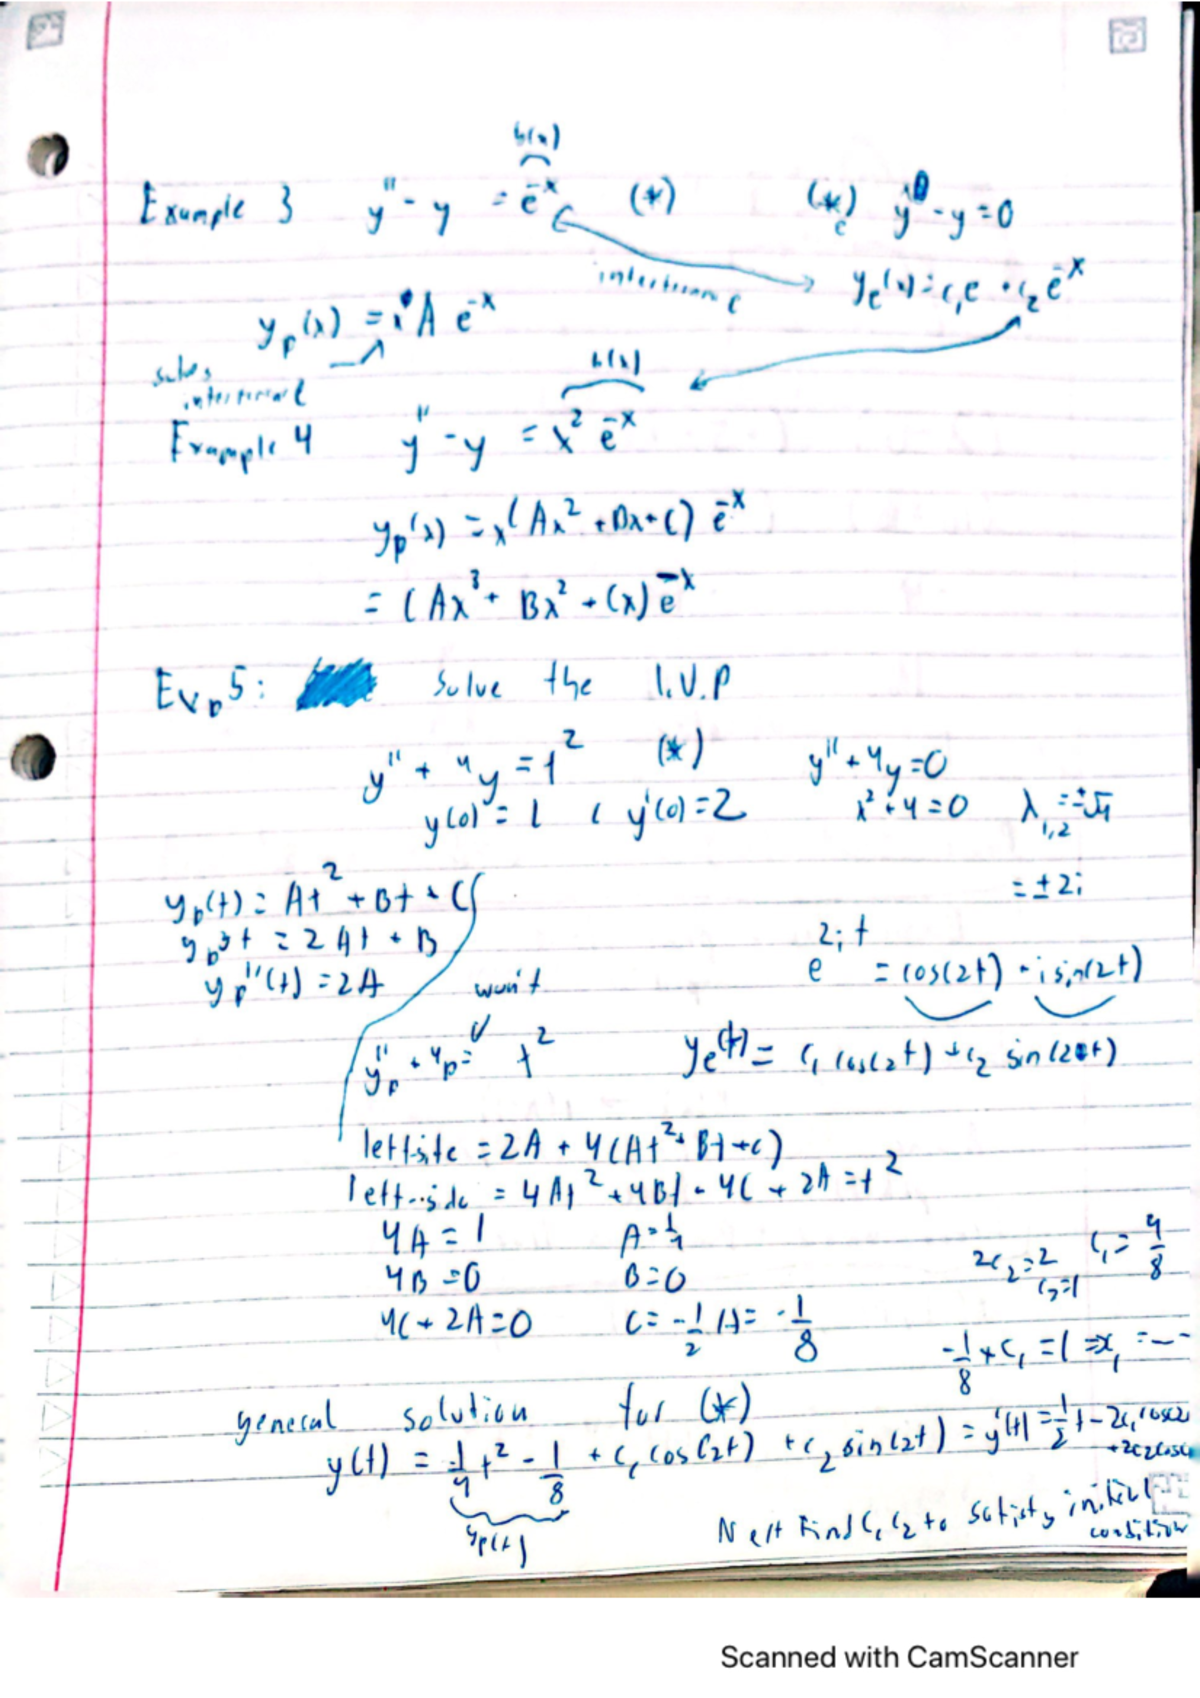 b(x)
Example 3 y'' - y = e^-x (*) (*)c y'' - y = 0
interference yc(x) = c1e + c2 e^-x
yp(x) = x A e^-x
solves
interference b(x)
Example 4 y'' - y = x^2 e^-x
yp(x) = x(Ax^2 + Bx + C) e^-x
= (Ax^3 + Bx^2 + Cx) e^-x
Exp 5: Solve the I.V.P
y'' + 4y = t^2 (*) y'' + 4y = 0
y(0) = 1 ( y'(0) = 2 λ^2 + 4 = 0 λ1,2 = ±√4
= ±2i
yp(t) = At^2 + Bt + C
yp't = 2At + B e^2it = cos(2t) + i sin(2t)
yp''(t) = 2A
won't
yp'' + 4p = t^2 yc(t) = c1 cos(2t) + c2 sin(2t)
left-site = 2A + 4(At^2 + Bt + c)
left-side = 4At^2 + 4Bt + 4C + 2A = t^2
4A = 1 A = 1/4
4B = 0 B = 0
2c2 = 2 c1 = 9/8
c2 = 1
4C + 2A = 0 C = -1/2 A = -1/8
-1/8 + c1 = 1 => x1 = ---
general solution for (*)
y(t) = 1/4 t^2 - 1/8 + c1 cos(2t) + c2 sin(2t) = y'(t) = 1/2 t - 2c1 cos2
+2c2cos
yp(t)
Next Find c1 c2 to satisfy initial
condition
Scanned with CamScanner